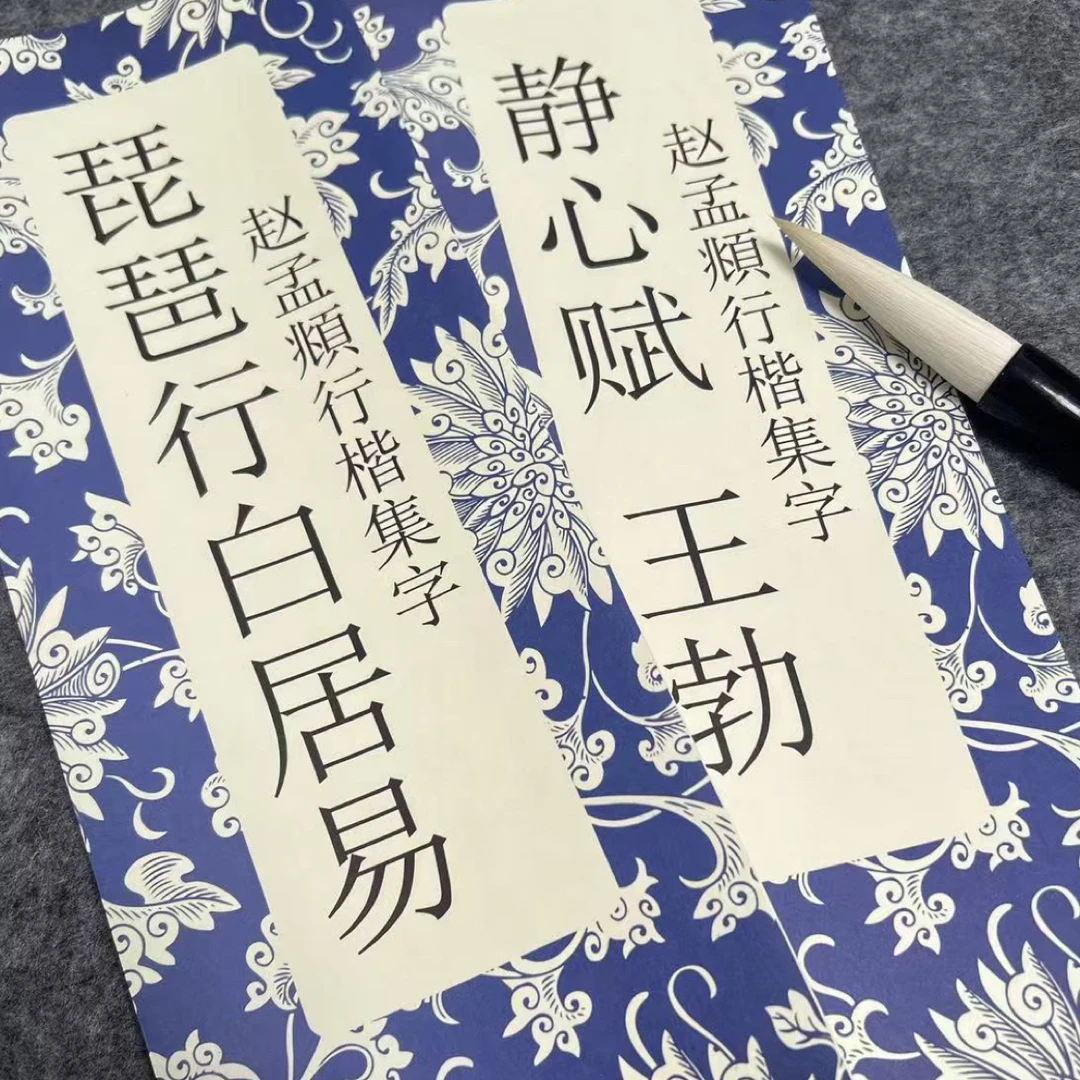 琵琶行 白居易
赵孟頫行楷集字
静心赋 王勃
赵孟頫行楷集字